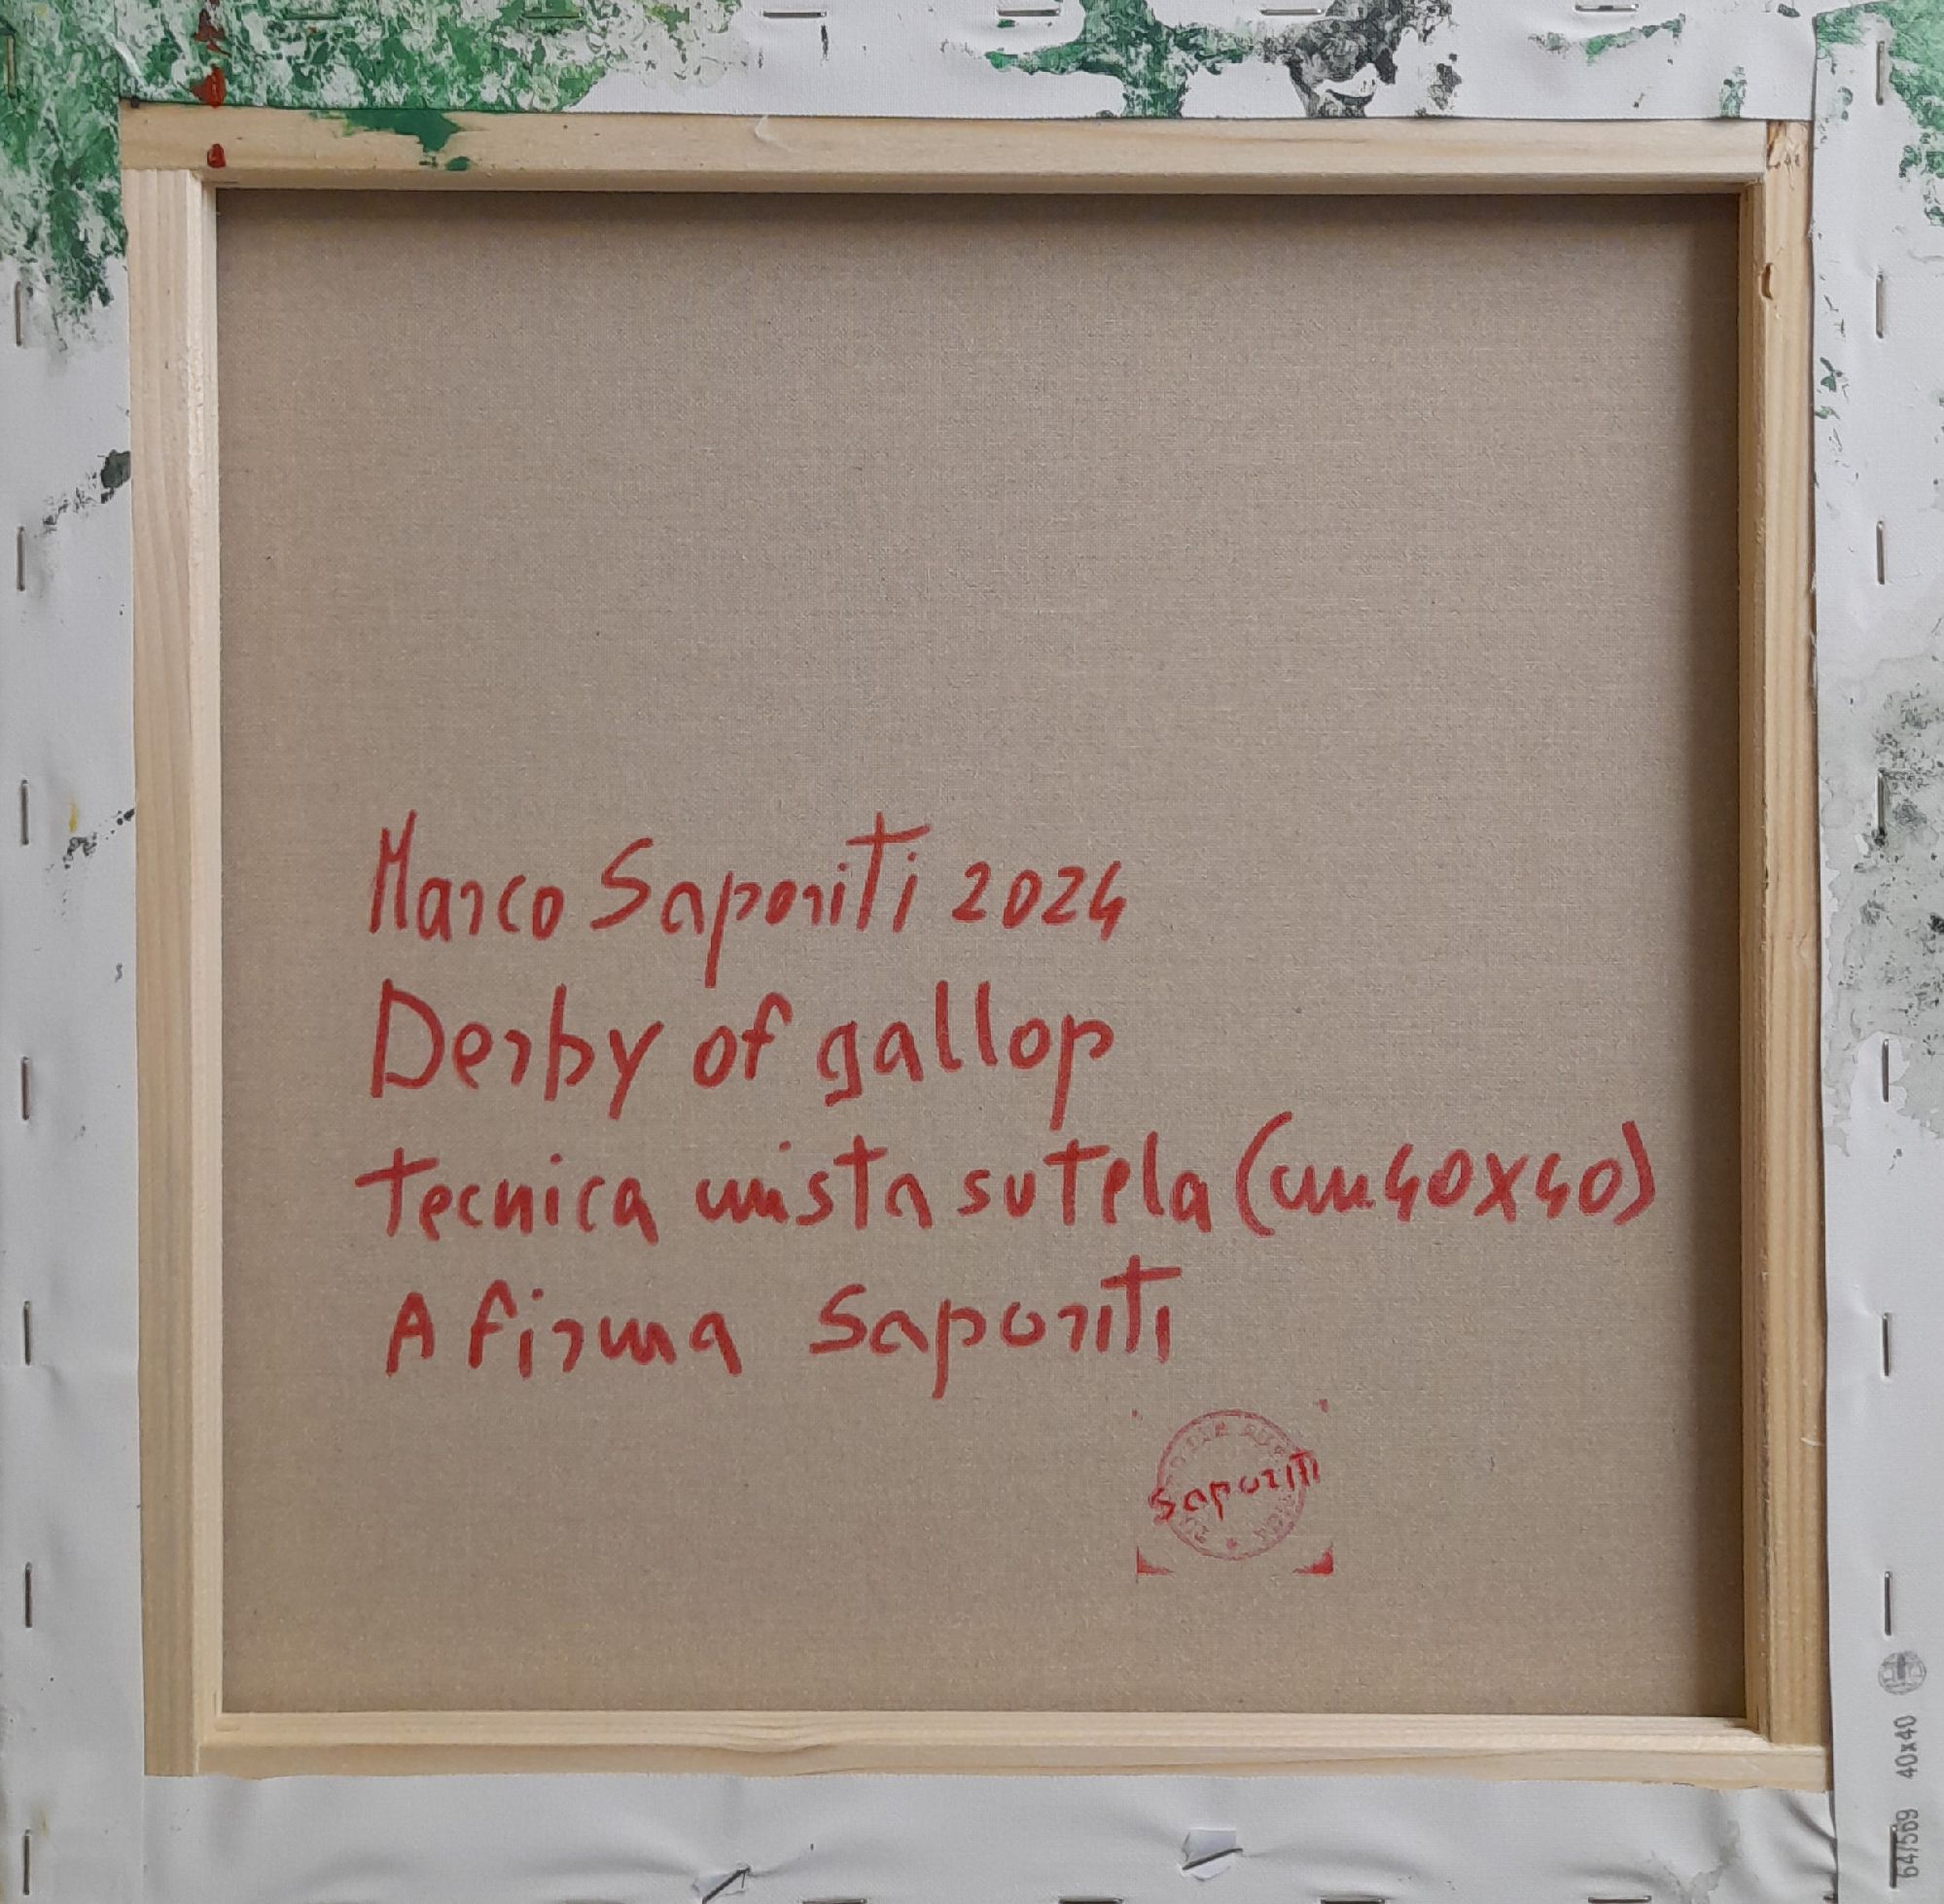 Marco Saporiti 2024
Derby of gallop
tecnica mista su tela (cm 40x40)
A firma Saporiti
Saporiti
64/569 40x40